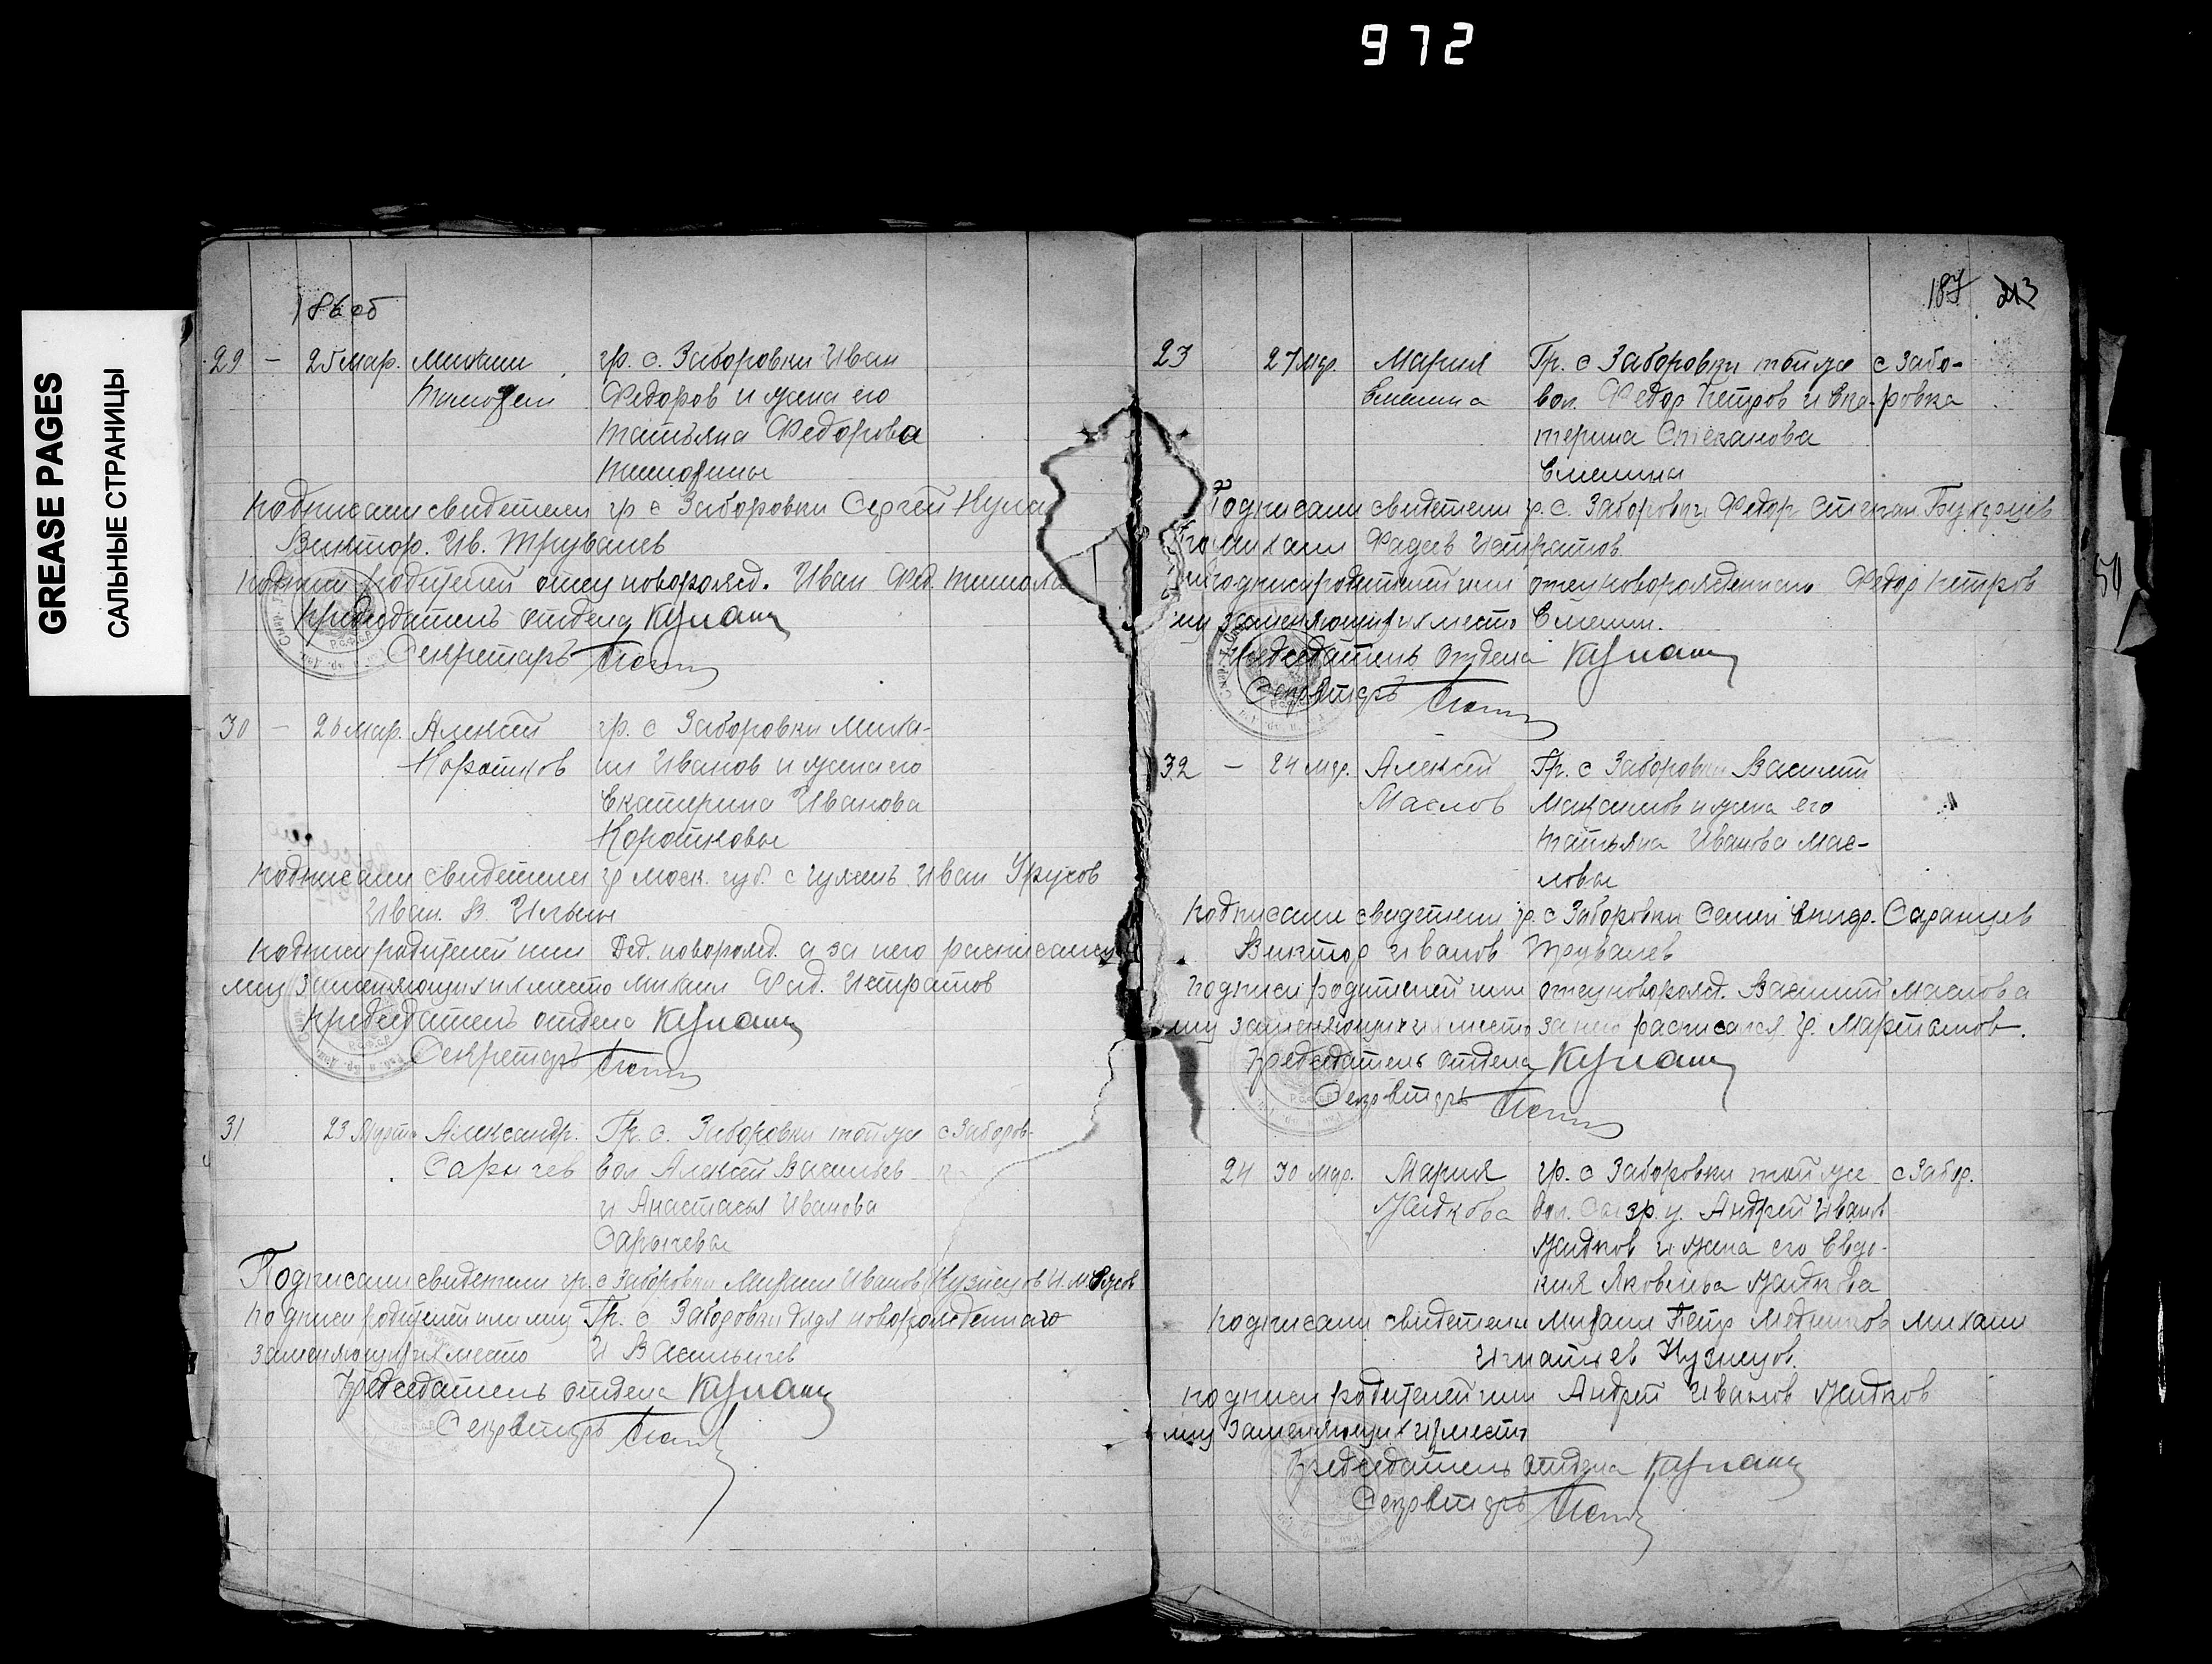 972
GREASE PAGES
САЛЬНЫЕ СТРАНИЦЫ
186 об
29 – 25 мар. Михаил гр. с. Заборовки Иван
Тимофеев Федоров и жена его
Татьяна Федорова
Тимофеевы
Подписали свидетели гр с Заборовки Сергей
Виктор. Ив. Трувалев
Подписи родителей отец новорожд. Иван Фед.
Председатель отдела
Секретарь
30 – 26 мар. Алексей гр. с Заборовки Миха-
Коротков ил Иванов и жена его
Екатерина Иванова
Коротковы
Подписали свидетели гр моск. губ. с Иван
Иван. В. Ильин
Подписи родителей или Дед. новорожд. а за него расписался
лиц заменяющих их место Михаил Фад. Истратов
Председатель отдела
Секретарь
31 23 Марта Александр. Гр. с. Заборовки той же с Заборов-
Сарычев вол Алексей Васильев ка
и Анастасья Иванова
Сарычевы
Подписали свидетели гр. с Заборовки Михаил Иванов Кузнецов И.М.
Подписи родителей или лиц Гр. с. Заборовки дядя новорожденного
заменяющих их место И Васильичев
Председатель отдела
Секретарь
187 213
23 27 мар. Мария Гр. с Заборовки той же с Забо-
Емелина вол. Федор Петров и Ека- ровка
терина Степанова
Емелины
Подписали свидетели гр. с. Заборовки Федор Степан
Михаил Фадеев Истратов.
Подписи родителей или отец новорожденного Федор Петров
лиц заменяющих их место Емелин.
Председатель отдела
Секретарь
32 – 24 мар. Алексей Гр. с Заборовки Василий
Маслов Максимов и жена его
Татьяна Иванова Мас-
ловы
Подписали свидетели гр. с Заборовки Семен Саранцев
Виктор Иванов Трувалев
Подписи родителей или отец новорожд. Василий Маслов а
лиц заменяющих их место за него расписался гр. Мартынов.
Председатель отдела
Секретарь
24 30 мар. Мария гр. с Заборовки той же с Забор.
Жидкова вол. Сызр. у. Андрей Иванов
Жидков и жена его Евдо-
кия Яковлева Жидкова
Подписали свидетели Михаил Петр Медников Михаил
Игнатьев Кузнецов.
Подписи родителей или Андрей Иванов Жидков
лиц заменяющих их место
Председатель отдела
Секретарь
50